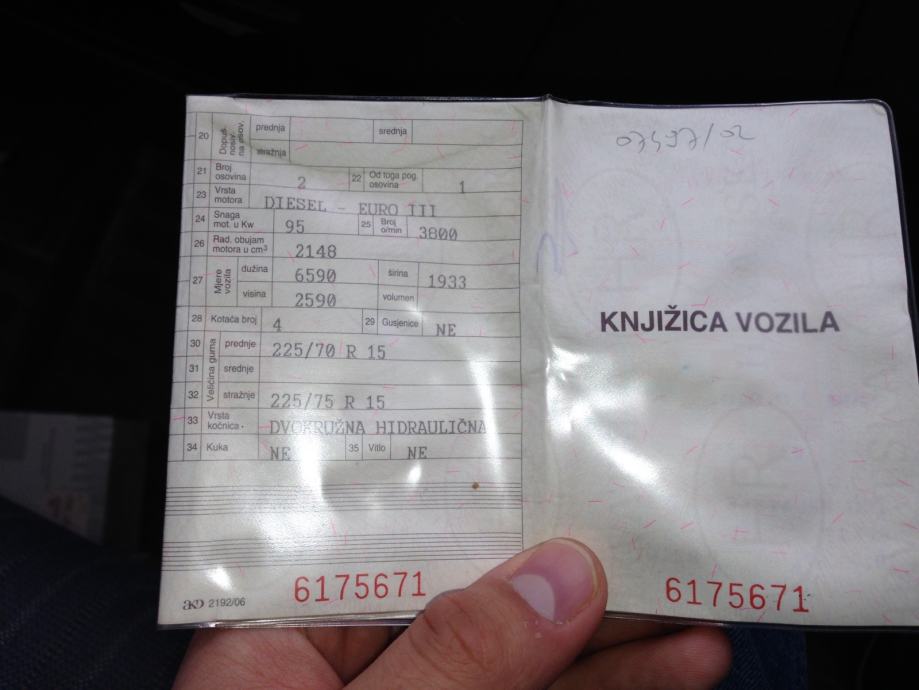 20 Dopuš. nosiv. na osov. prednja srednja
stražnja
21 Broj osovina 2 22 Od toga pog. osovina 1
23 Vrsta motora DIESEL - EURO III
24 Snaga mot. u Kw 95 25 Broj o/min 3800
26 Rad. obujam motora u cm³ 2148
27 Mjere vozila dužina 6590 širina 1933
visina 2590 volumen
28 Kotača broj 4 29 Gusjenice NE
30 Veličina guma prednje 225/70 R 15
31 srednje
32 stražnje 225/75 R 15
33 Vrsta kočnica DVOKRUŽNA HIDRAULIČNA
34 Kuka NE 35 Vitlo NE
6175671
AKD 2192/06
07497/02
KNJIŽICA VOZILA
6175671